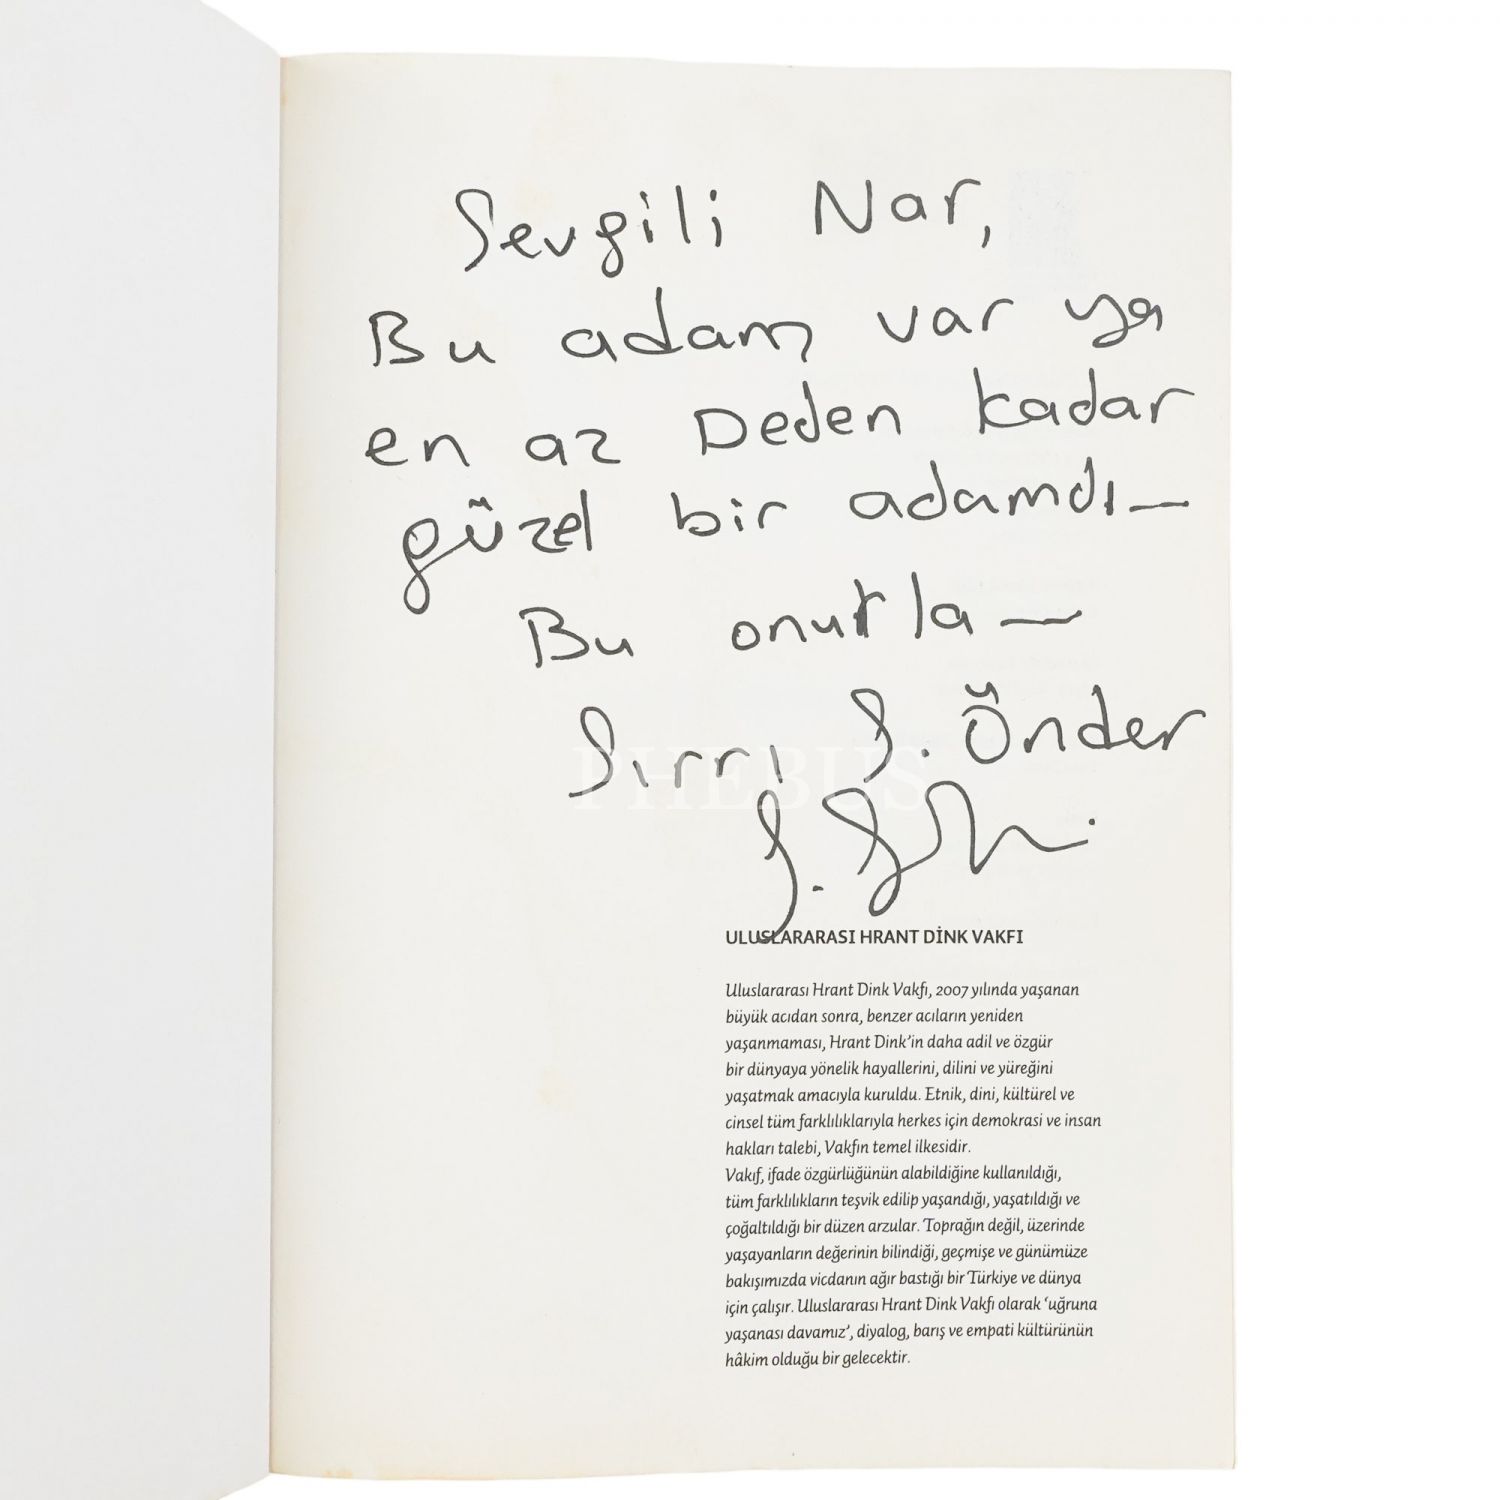 Sevgili Nar,
Bu adam var ya
en az Deden kadar
güzel bir adamdı—
Bu onurla—
Sırrı S. Önder
PHEBUS
ULUSLARARASI HRANT DİNK VAKFI
Uluslararası Hrant Dink Vakfı, 2007 yılında yaşanan
büyük acıdan sonra, benzer acıların yeniden
yaşanmaması, Hrant Dink'in daha adil ve özgür
bir dünyaya yönelik hayallerini, dilini ve yüreğini
yaşatmak amacıyla kuruldu. Etnik, dini, kültürel ve
cinsel tüm farklılıklarıyla herkes için demokrasi ve insan
hakları talebi, Vakfın temel ilkesidir.
Vakıf, ifade özgürlüğünün alabildiğine kullanıldığı,
tüm farklılıkların teşvik edilip yaşandığı, yaşatıldığı ve
çoğaltıldığı bir düzen arzular. Toprağın değil, üzerinde
yaşayanların değerinin bilindiği, geçmişe ve günümüze
bakışımızda vicdanın ağır bastığı bir Türkiye ve dünya
için çalışır. Uluslararası Hrant Dink Vakfı olarak 'uğruna
yaşanası davamız', diyalog, barış ve empati kültürünün
hâkim olduğu bir gelecektir.